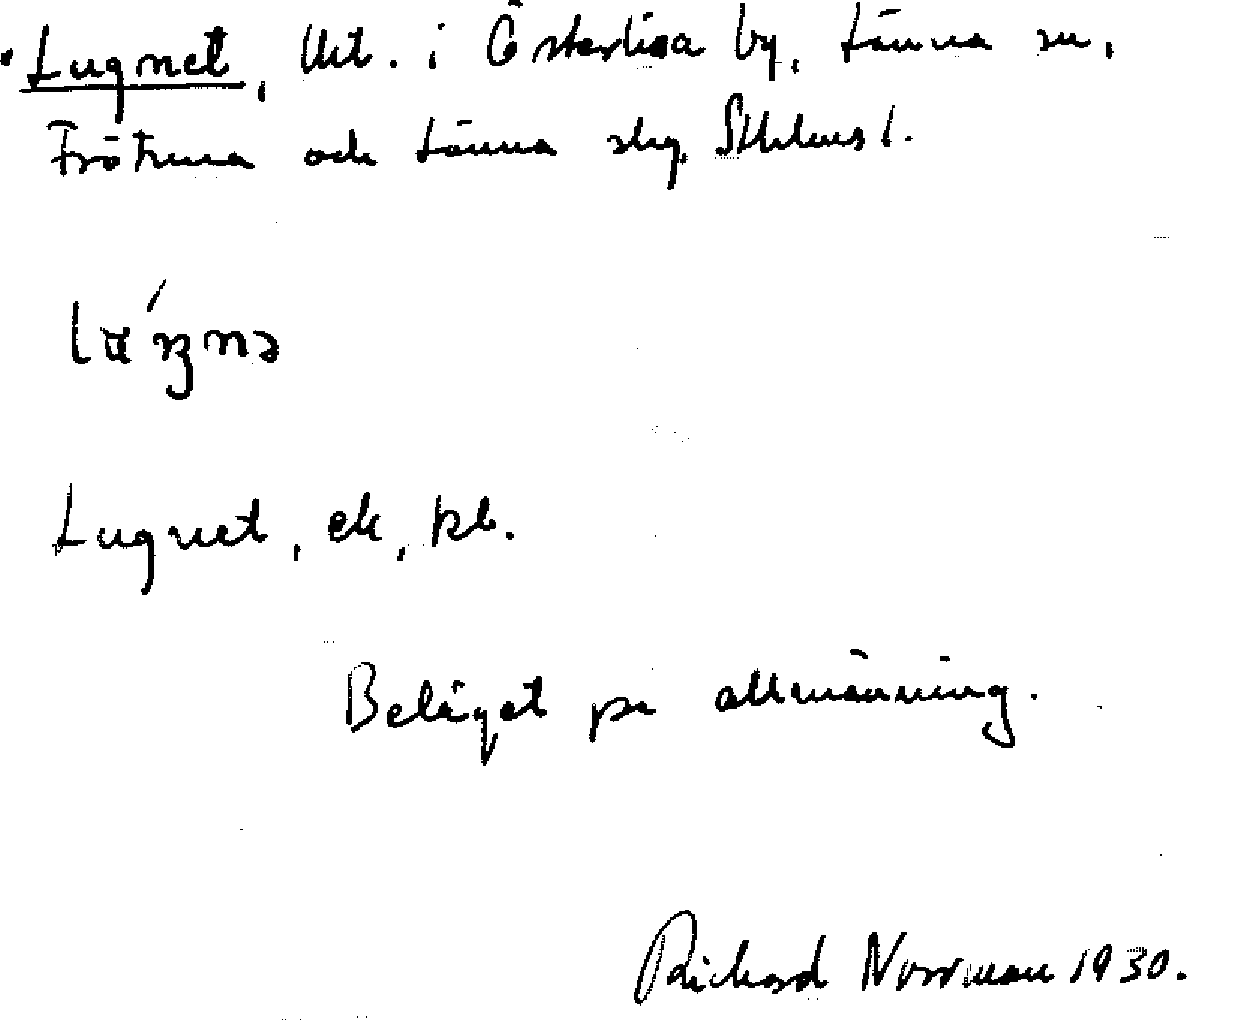 Lugnet, lht. i Österlisa by, Länna sn,
Frötuna och Länna skg, Sthlms l.
Lugnet, ek, kb.
Beläget på allmänning.
Richard Norrman 1930.